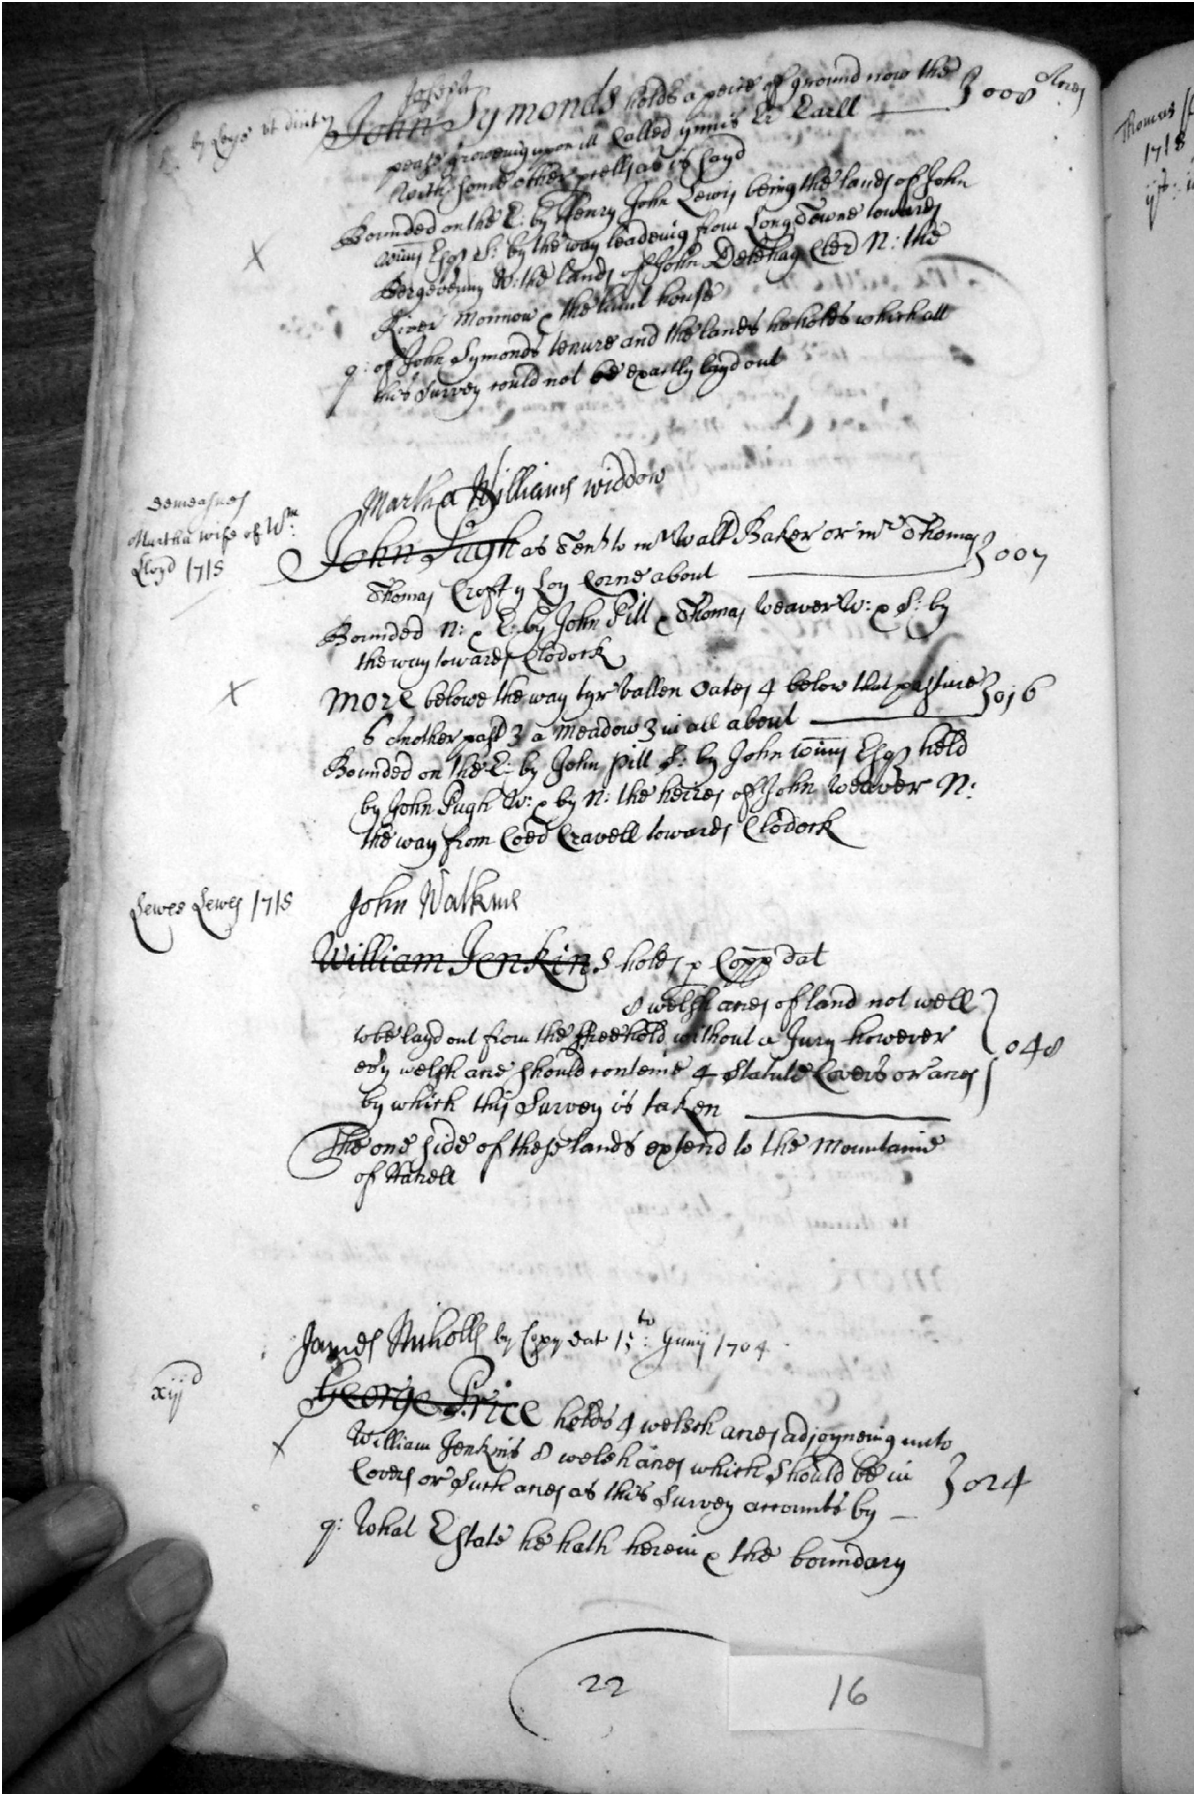 Joseph
by Leys ut dicitr
John Symonds holds a peice of ground now the Acres
pease groweing upon itt Called ynnis Er Earll 008
North some other prells as is sayd
Bounded on the E: by Henry John Lewis being the lands of John
Winn Esqr S: by the way leadeing from Long Towne towards
Bergevenny W: the lands of John Delehay Cler N: the
River Monnow & the house
q: of John Symonds tenure and the lands he holds which att
this Survey could not be exactly layd out
demeasnes
Martha wife of Wm:
Lloyd 1718
Martha Williams widdow
John Pugh as Tent to mr Walt Baker or mr Thomas
Thomas Croft y Loy Corne about 007
Bounded N: & E: by John Pill & Thomas Weaver W: & S: by
the way towards Clodock
More belowe the way tyr ballen Oates 4 below that pasture
6 Another past 3 a Meadow 3 in all about 016
Bounded on the E: by John Pill S: by John Winn Esqr held
by John Pugh W: & by N: the heires of John Weaver N:
the way from Coed Cravell towards Clodock
Lewes Lewes 1718
John Watkins
William Jenkins holds p Copp dat
8 welsh acres of land not well
to be layd out from the ffreehold without a Jury however
evry welsh acre should conteine 4 Statute Covers or acres 048
by which this Survey is taken
The one side of these lands extend to the Mountaine
of Hatrell
James Nicholls by Copy dat 15to: Junij 1704
xijd
George Price holds 4 welsh acres adjoyneing unto
William Jenkins 8 welsh acres which should be in
Covers or Such acres as this Survey accounts by 024
q: What Estate he hath herein & the boundary
22
16
Thomas
1718